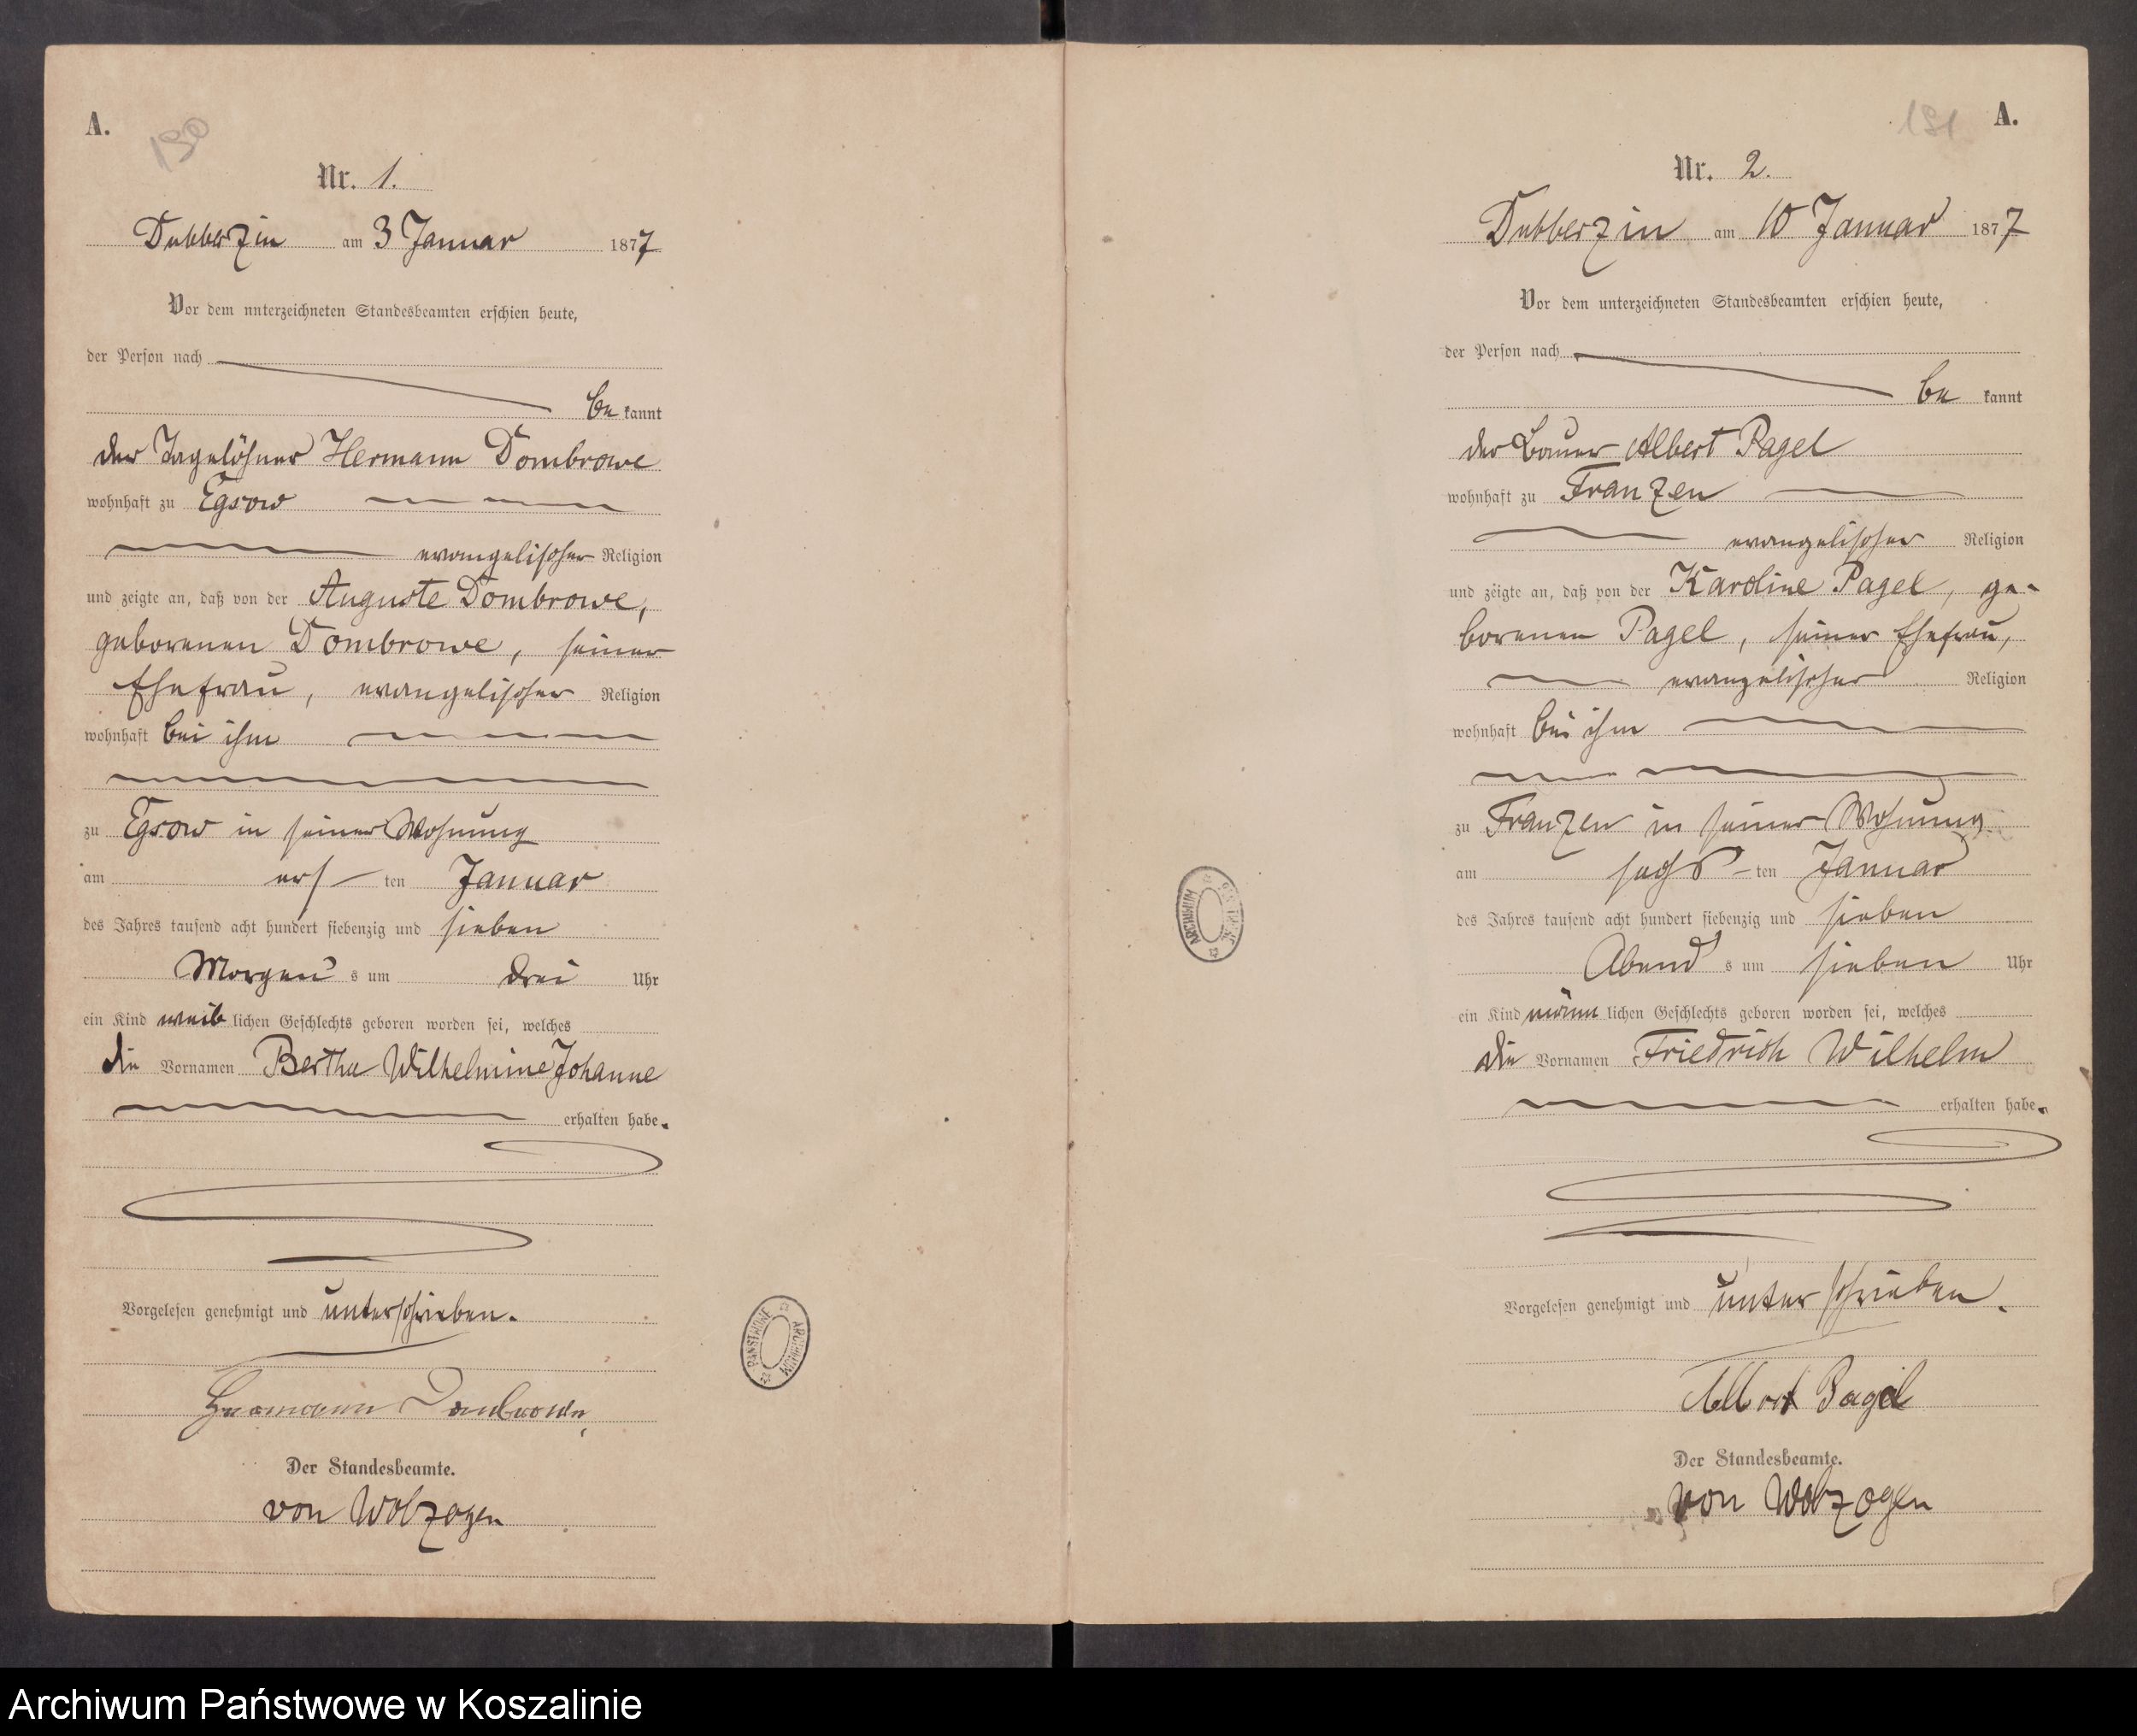 A.
190
Nr. 1.
Dubberzin am 3 Januar 1877
Vor dem unterzeichneten Standesbeamten erschien heute,
der Person nach
be kannt
der Tagelöhner Hermann Dombrowe
wohnhaft zu Egsow
evangelischer Religion
und zeigte an, daß von der Auguste Dombrowe,
geborenen Dombrowe, seiner
Ehefrau, evangelischer Religion
wohnhaft bei ihm
zu Egsow in seiner Wohnung
am ers ten Januar
des Jahres tausend acht hundert siebenzig und sieben
Morgen s um drei Uhr
ein Kind weib lichen Geschlechts geboren worden sei, welches
die Vornamen Bertha Wilhelmine Johanne
erhalten habe.
Vorgelesen genehmigt und unterschrieben.
Hermann Dombrowe
Der Standesbeamte.
von Wolzogen
ARCHIWUM PAŃSTWOWE
191
A.
Nr. 2.
Dubberzin am 10 Januar 1877
Vor dem unterzeichneten Standesbeamten erschien heute,
der Person nach
be kannt
der Bauer Albert Pagel
wohnhaft zu Franzen
evangelischer Religion
und zeigte an, daß von der Karoline Pagel, ge-
borenen Pagel, seiner Ehefrau,
evangelischer Religion
wohnhaft bei ihm
zu Franzen in seiner Wohnung
am sechs ten Januar
des Jahres tausend acht hundert siebenzig und sieben
Abend s um sieben Uhr
ein Kind männ lichen Geschlechts geboren worden sei, welches
die Vornamen Friedrich Wilhelm
erhalten habe.
Vorgelesen genehmigt und unterschrieben.
Albert Pagel
Der Standesbeamte.
von Wolzogen
ARCHIWUM
Archiwum Państwowe w Koszalinie